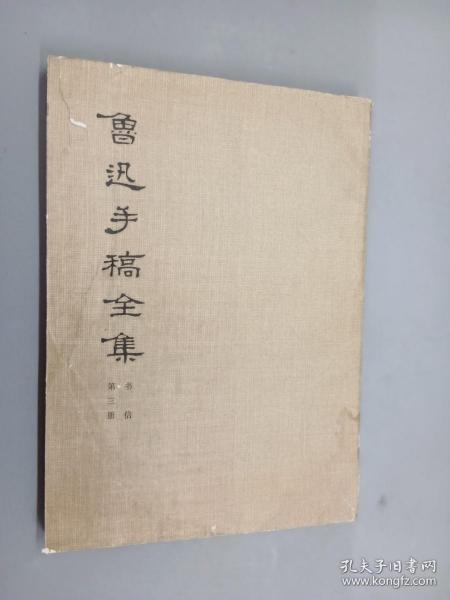 魯迅手稿全集
书信
第三册
孔夫子旧书网
www.kongfz.com